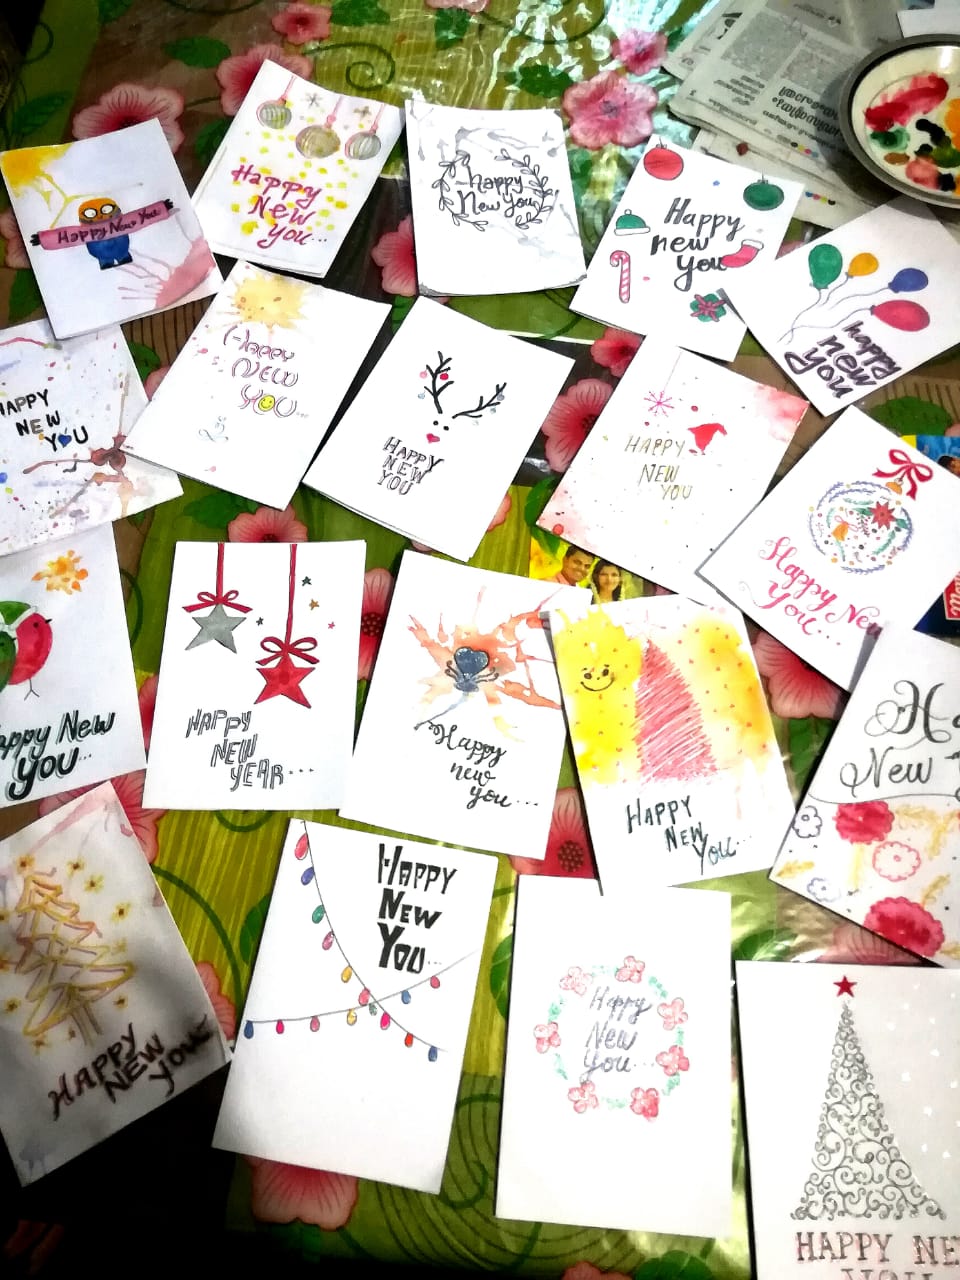 Happy New You
Happy
New
you...
Happy
New You
Happy
new
you
happy
new
you
HAPPY
NEW
YOU
Happy
NEW
YOU...
HAPPY
NEW
YOU
HAPPY
NEW
YOU
Happy New
You...
Happy New
You...
HAPPY
NEW
YEAR...
Happy
new
you...
HAPPY
NEW
You...
New
HAPPY
NEW
YOU
HAPPY
NEW
YOU...
Happy
New
You...
HAPPY